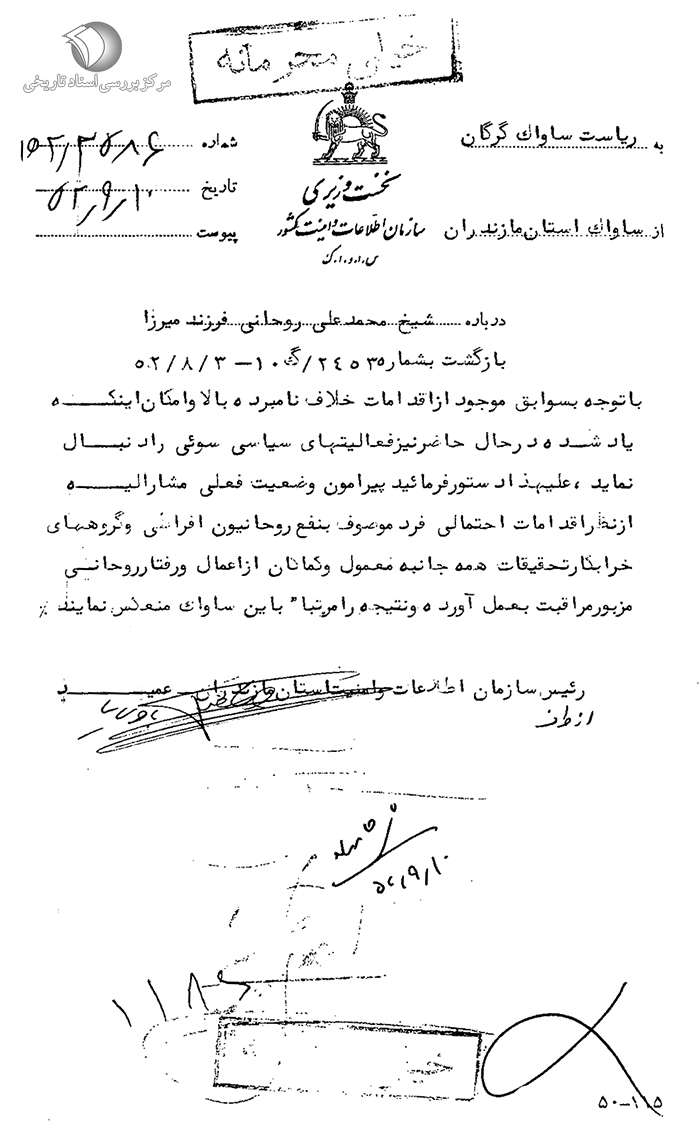 مرکز بررسی اسناد تاریخی
خیلی محرمانه
به ریاست ساواك گرگان
از ساواك استان مازندران
نخست وزیری
سازمان اطلاعات و امنیت کشور
س.ا.و.ا.ک
شماره ۱۵۲/۳۵۸۶
تاریخ ۵۲/۹/۱۰
پیوست
درباره شیخ محمدعلی روحانی فرزند میرزا
بازگشت بشماره ۲۴۵۳/گ ۱۰ – ۵۲/۸/۳
باتوجه بسوابق موجود ازاقدامات خلاف نامبرده بالا وامکان اینکه
یاد شده درحال حاضرنیزفعالیتهای سیاسی سوئی رادنبال
نماید ،علیهذا دستورفرمائید پیرامون وضعیت فعلی مشارالیه
ازنظراقدامات احتمالی فرد موصوف بنفع روحانیون افراطی وگروههای
خرابکارتحقیقات همه جانبه معمول وکماکان ازاعمال ورفتارروحانی
مزبورمراقبت بعمل آورده ونتیجه رامرتبا" باین ساواك منعکس نمایند ٪
رئیس سازمان اطلاعات وامنیت استان مازندران – عمید
از طرف
۵۲/۹/۱۰
۱۱۸
خی
۵۰–۱۱۵